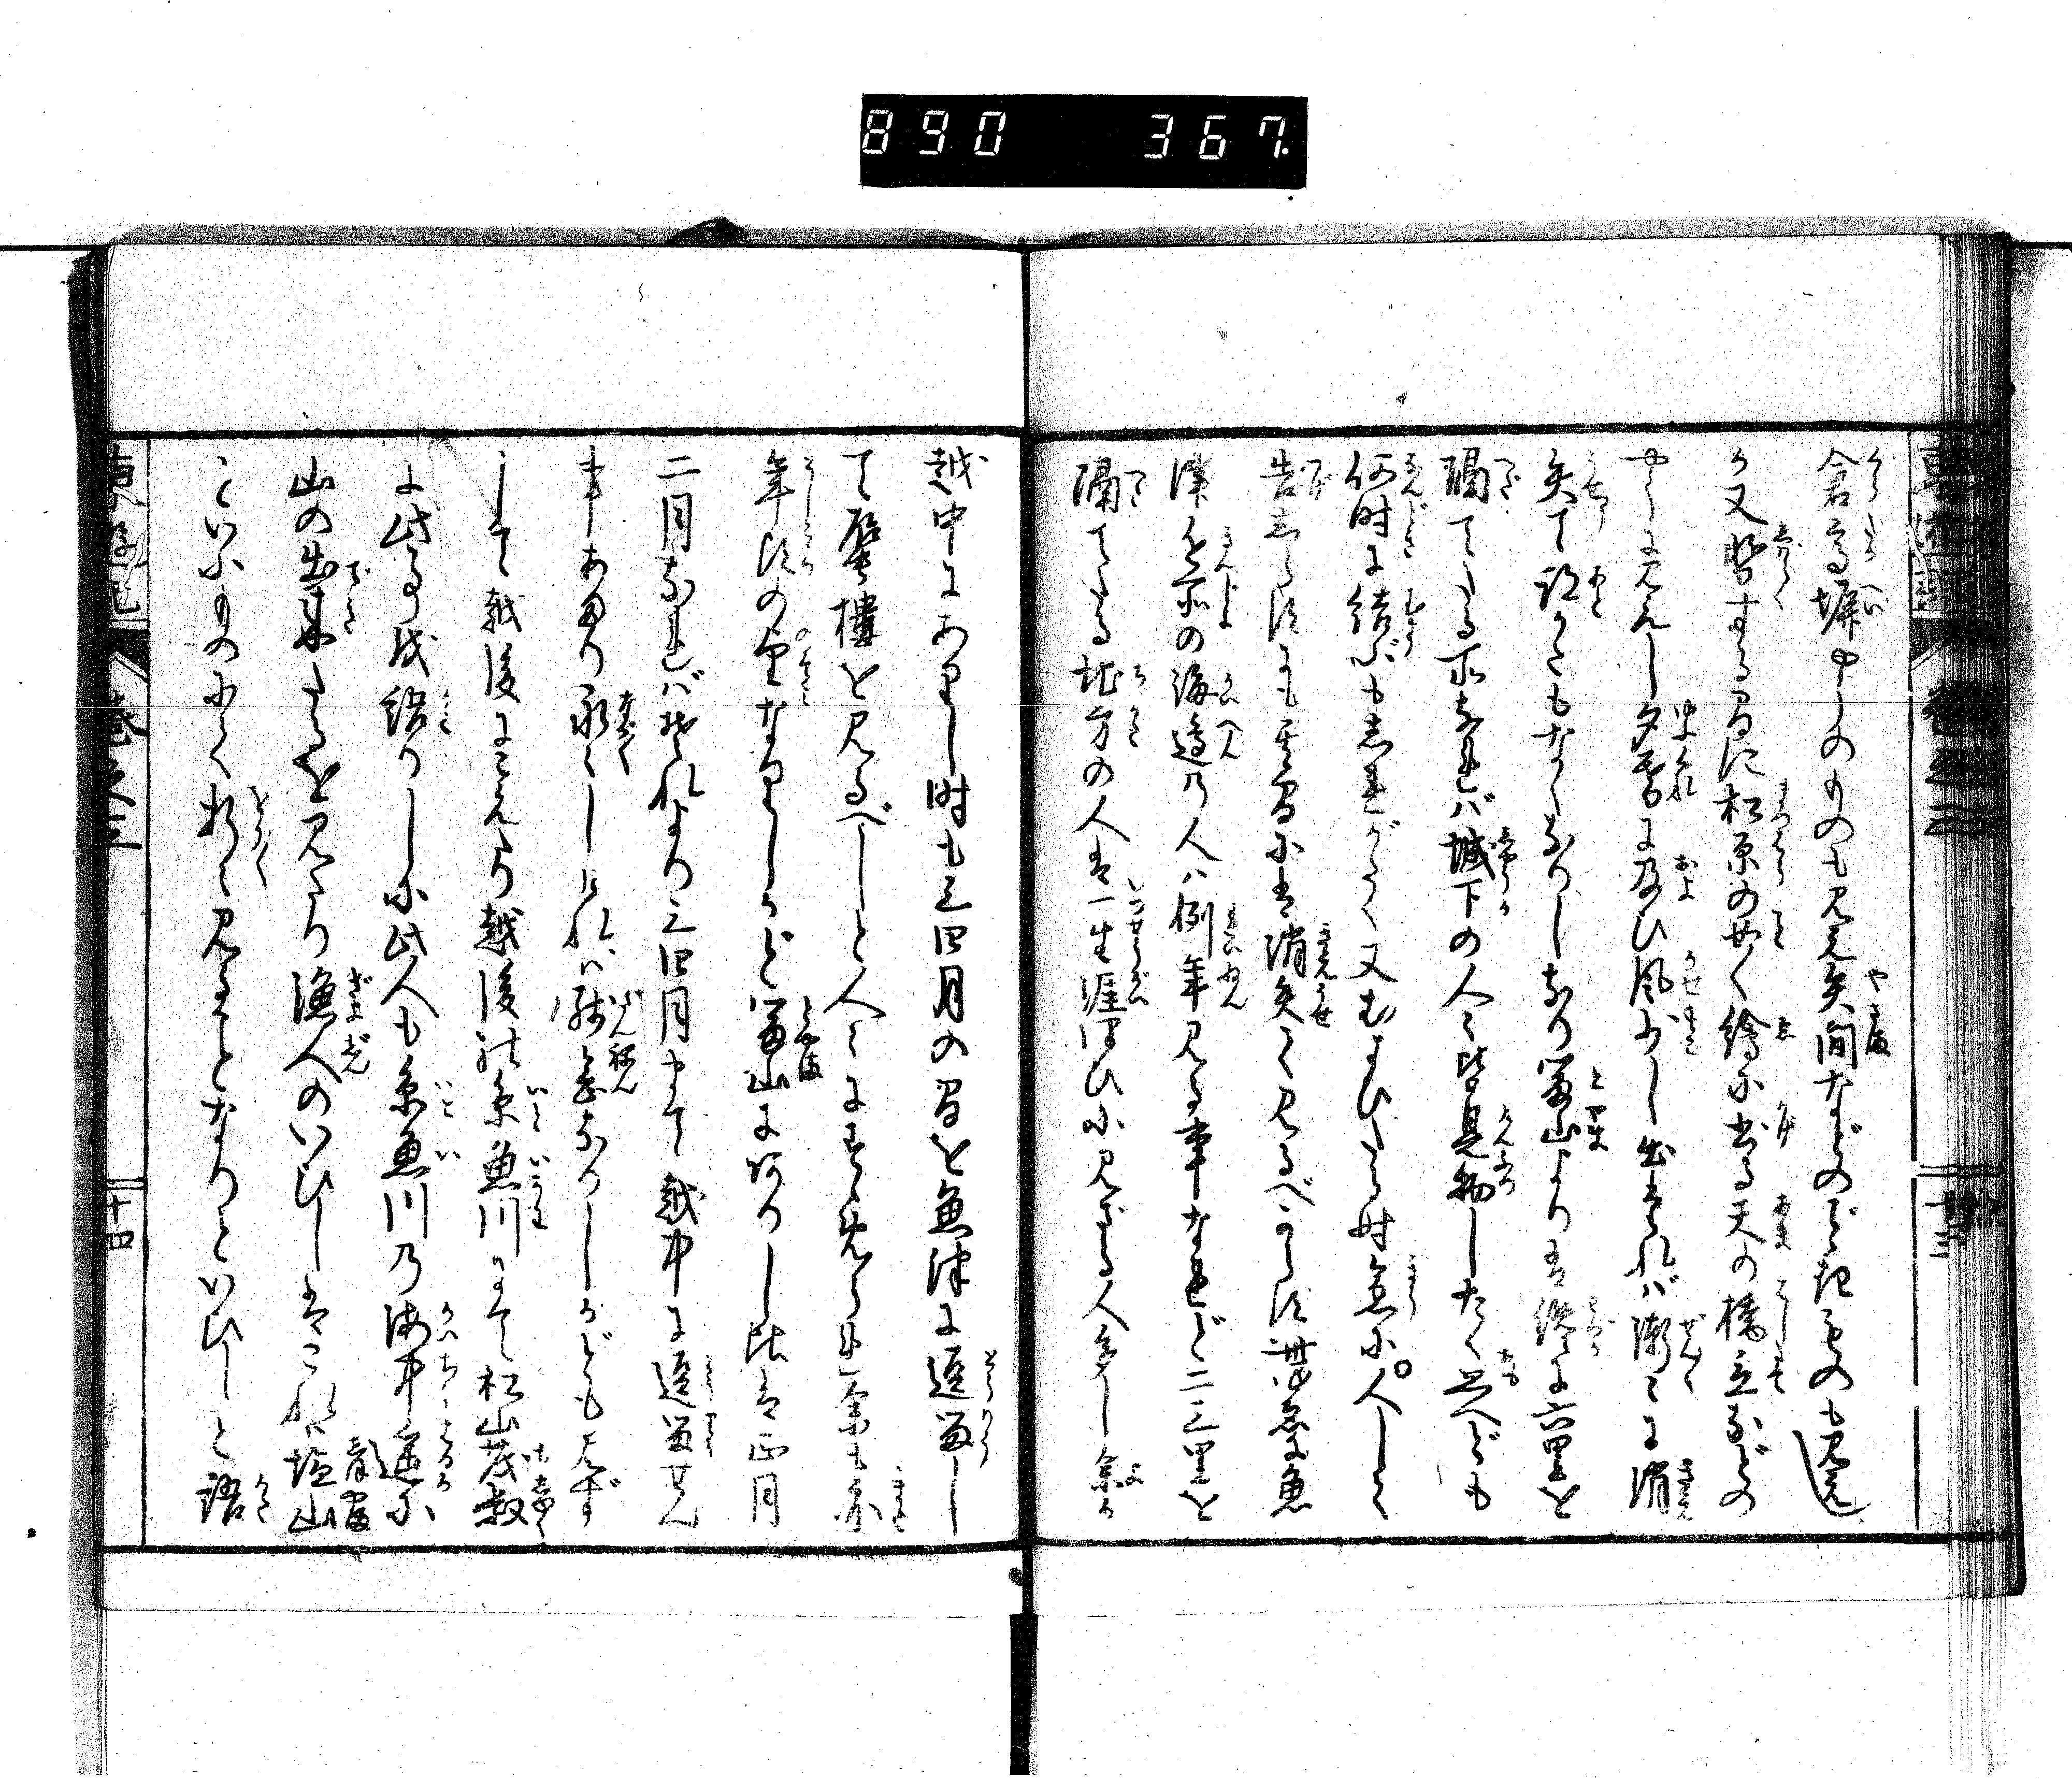 890 367
倉高塀やうのものも見え矢間などのごときものも見ゆ
又暫する間に松原のせく絵に書る天の橋立などの
やうに見えし夕暮に及び風少し出ければ漸々に消
失て跡かたもなくなりしなり富山よりは纔に六里を
隔てたる所なれば城下の人々皆見物したく思へども
何時に結ぶも志れがたく又むすびたる時急に人して
告しらすにも其間には消失て見るべからず其故に魚
津近所の海辺の人は例年見る事なれど二三里を
隔てたる地方の人は一生涯つひに見ざる人多し余が
越中にありし時も三四月の間を魚津に逗留し
て蜃樓を見るべしと人々にすすめられ余も亦
年頃の望なりしかど富山にありし比は正月
二月なればそれより三四月まで越中に逗留せん
事あまり永くしければ残念なりしかども見ず
して越後にこえたり越後糸魚川にて松山茂叔
に此事を語りしに此人も糸魚川の海中遥に
山の出来たるを見たり漁人のいひしはこれは塩山
といふものにて折々見ることなりといひしと語
東遊記 巻之三 十四